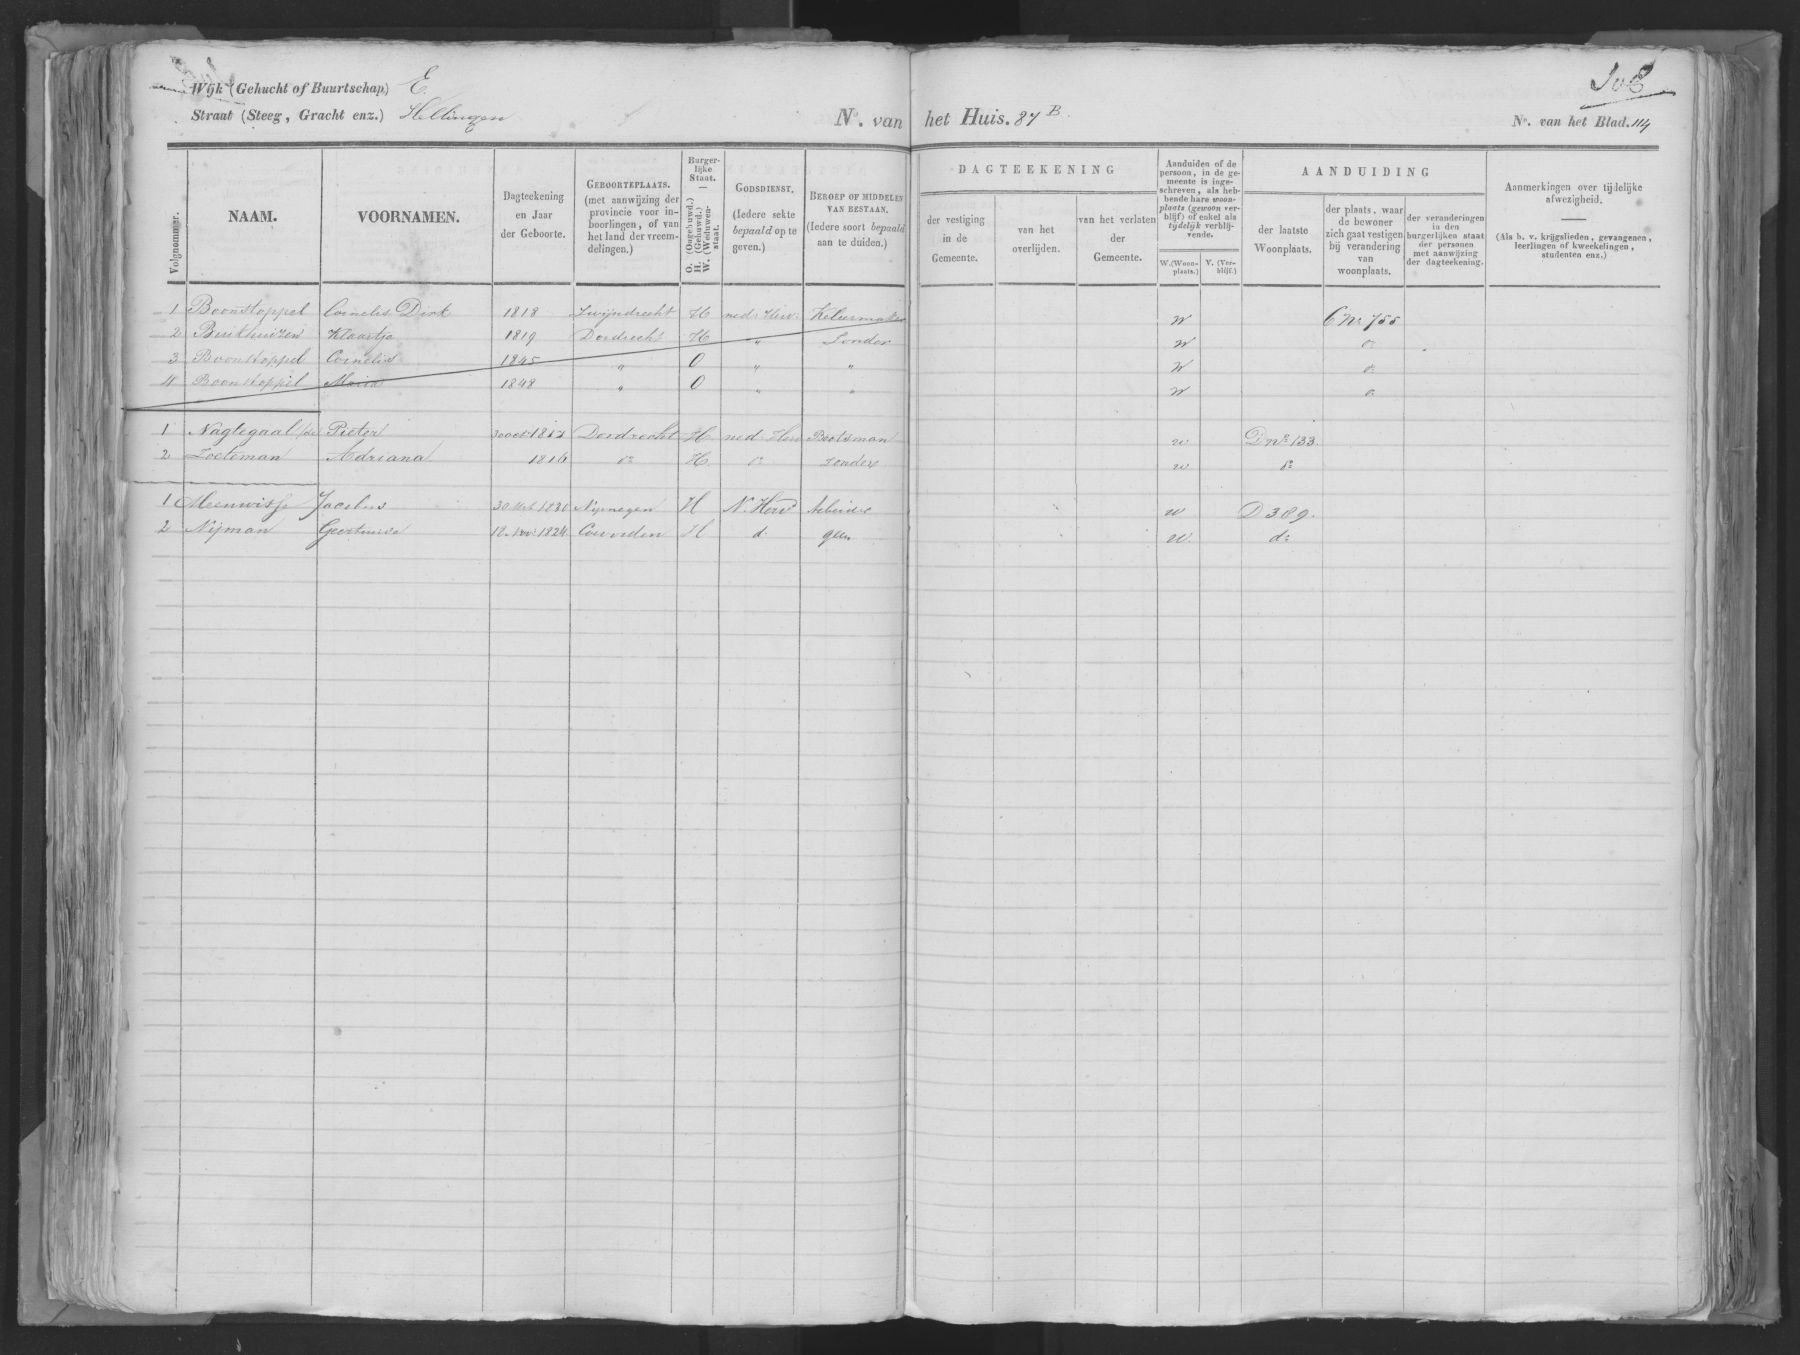 Wijk (Gehucht of Buurtschap) E.
Straat (Steeg, Gracht enz.) Hellingen
No. van het Huis. 87 B.
No. van het Blad. 114
Volgnommer.
NAAM.
VOORNAMEN.
Dagteekening en Jaar der Geboorte.
GEBOORTEPLAATS. (met aanwijzing der provincie voor inboorlingen, of van het land der vreemdelingen.)
Burgerlijke Staat. — O. (Ongehuwd.) H. (Gehuwd.) W. (Weduwenstaat.
GODSDIENST. (Iedere sekte bepaald op te geven.)
BEROEP OF MIDDELEN VAN BESTAAN. (Iedere soort bepaald aan te duiden.)
DAGTEEKENING
der vestiging in de Gemeente.
van het overlijden.
van het verlaten der Gemeente.
Aanduiden of de persoon, in de gemeente is ingeschreven, als hebbende hare woonplaats (gewoon verblijf) of enkel als tijdelijk verblijvende.
W. (Woonplaats.) V. (Verblijf.)
AANDUIDING
der laatste Woonplaats.
der plaats, waar de bewoner zich gaat vestigen bij verandering van woonplaats.
der veranderingen in den burgerlijken staat der personen met aanwijzing der dagteekening.
Aanmerkingen over tijdelijke afwezigheid.
(Als b. v. krijgslieden, gevangenen, leerlingen of kweekelingen, studenten enz.)
1 Boonstoppel Cornelis Dirk 1818 Zwijndrecht H ned: Herv: W C No 755
2 Buikhuizen Klaartje 1819 Dordrecht H " Zonder W o
3 Boonstoppel Cornelis 1845 " O " " W o
4 Boonstoppel Maria 1848 " O " " W o
1 Nagtegaal Pieter 30 oct 1817 Dordrecht H ned Herv Bootsman w D no 133.
2 Zoeteman Adriana 1816 do H do zonder w do
1 Jacobus 30 1830 Nijmegen H N. Herv Arbeider w D 389.
2 Nijman Geertruida 12 Nov: 1824 Coevorden H d. geen w. do